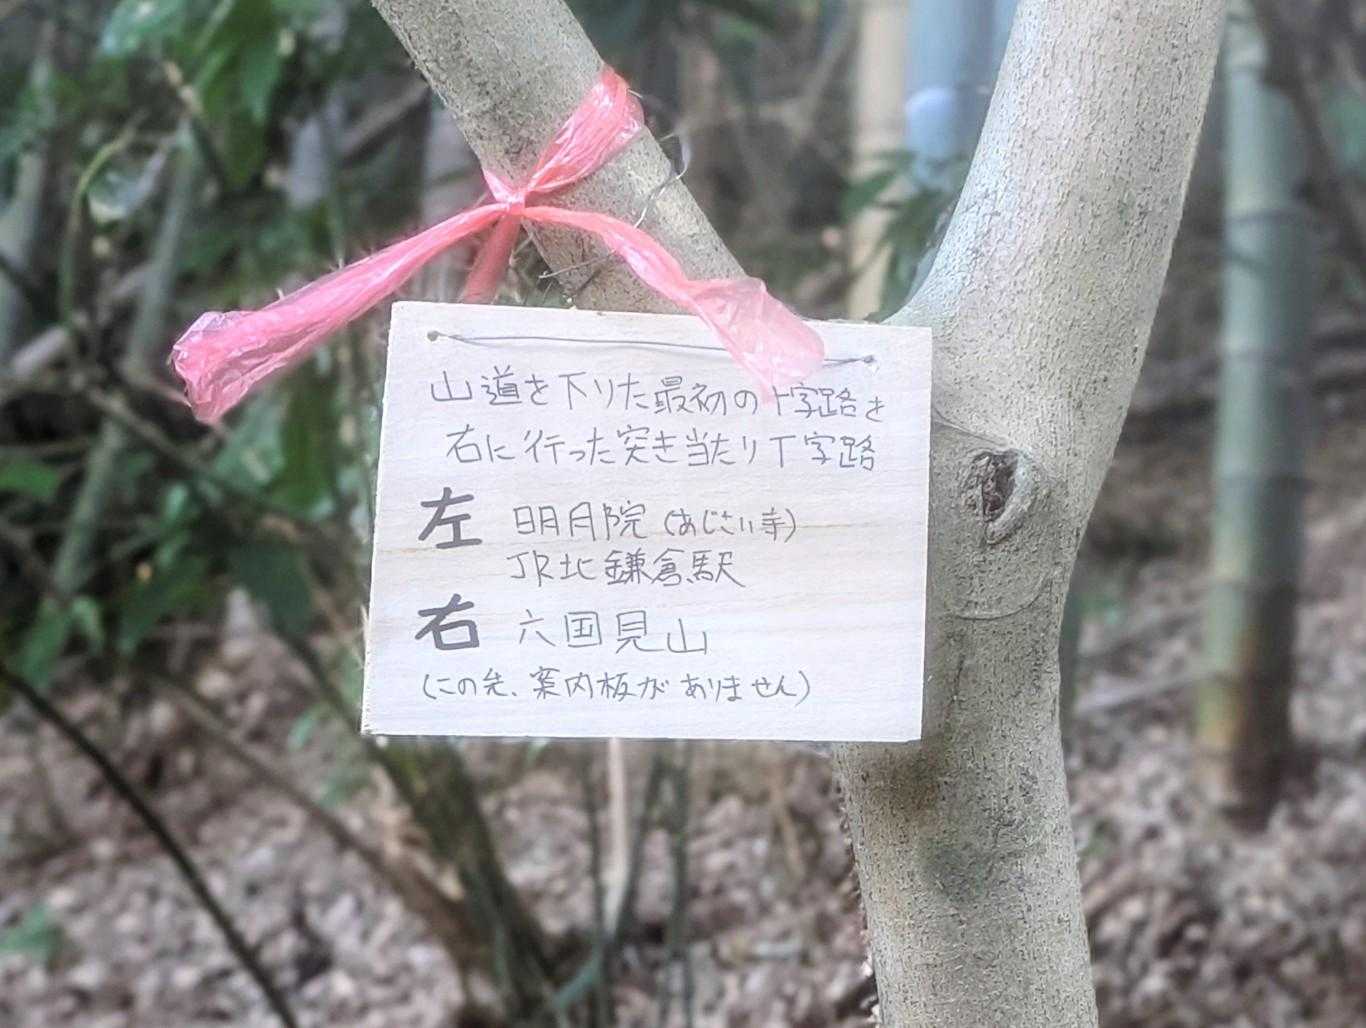 山道を下りた最初の十字路を
右に行った突き当たりT字路
左 明月院(あじさい寺)
JR北鎌倉駅
右 六国見山
(この先、案内板がありません)